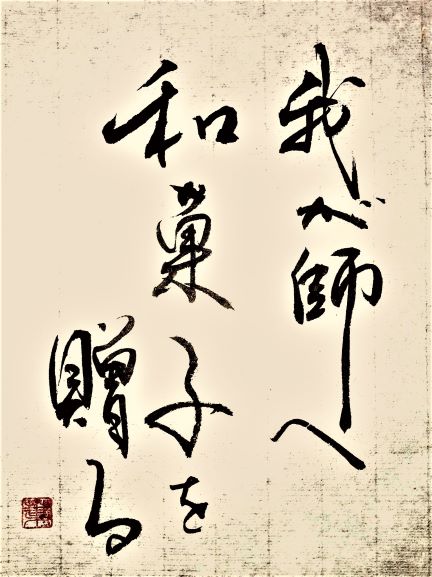 我が師へ
和菓子を
贈る